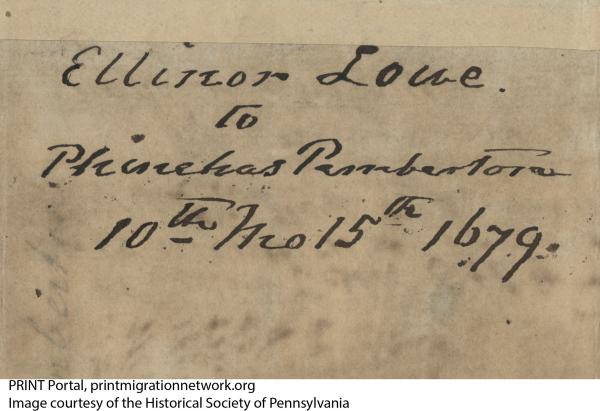 Ellinor Lowe.
to
Phinehas Pemberton
10th Mo 15th 1679.
PRINT Portal, printmigrationnetwork.org
Image courtesy of the Historical Society of Pennsylvania